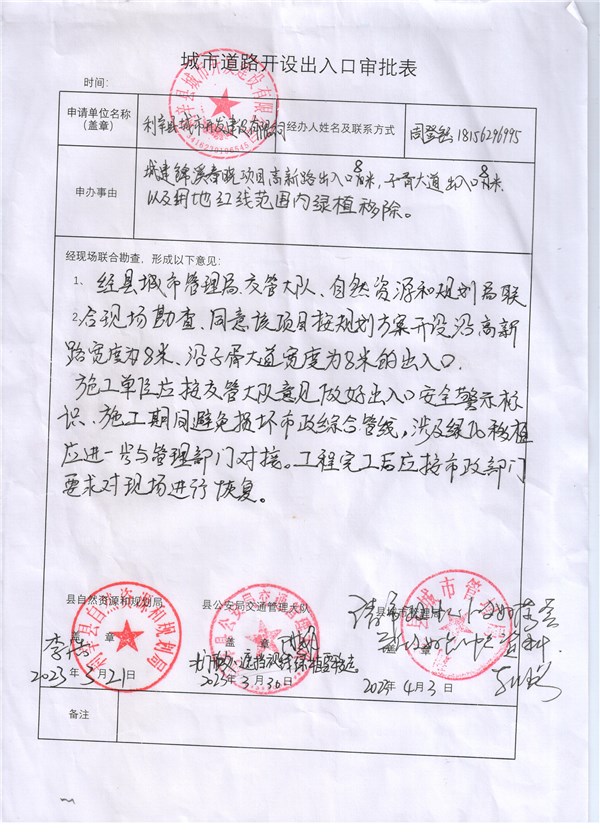 城市道路开设出入口审批表
时间：
申请单位名称（盖章）
利辛县城市开发建设有限公司
经办人姓名及联系方式
18156296995
申办事由
城建锦溪春晓项目高新路出入口8米，子胥大道出入口8米
以及用地红线范围内绿植移除。
经现场联合勘查，形成以下意见：
1、经县城市管理局、交管大队、自然资源和规划局联
2、合现场勘查、同意该项目按规划方案开设沿高新
路宽度为8米、沿子胥大道宽度为8米的出入口.
施工单位应按交管大队意见做好出入口安全警示标
识、施工期间避免损坏市政综合管线，涉及绿化移植
应进一步与管理部门对接。工程完工后应按市政部门
要求对现场进行恢复。
县自然资源和规划局
县公安局交通管理大队
盖 章
盖 章
盖 章
2023年3月21日
2023年3月30日
2023年4月3日
备注